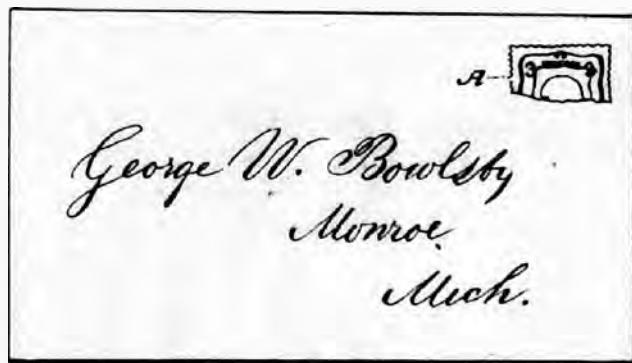 A
3
George W. Bowlsby
Monroe.
Mich.